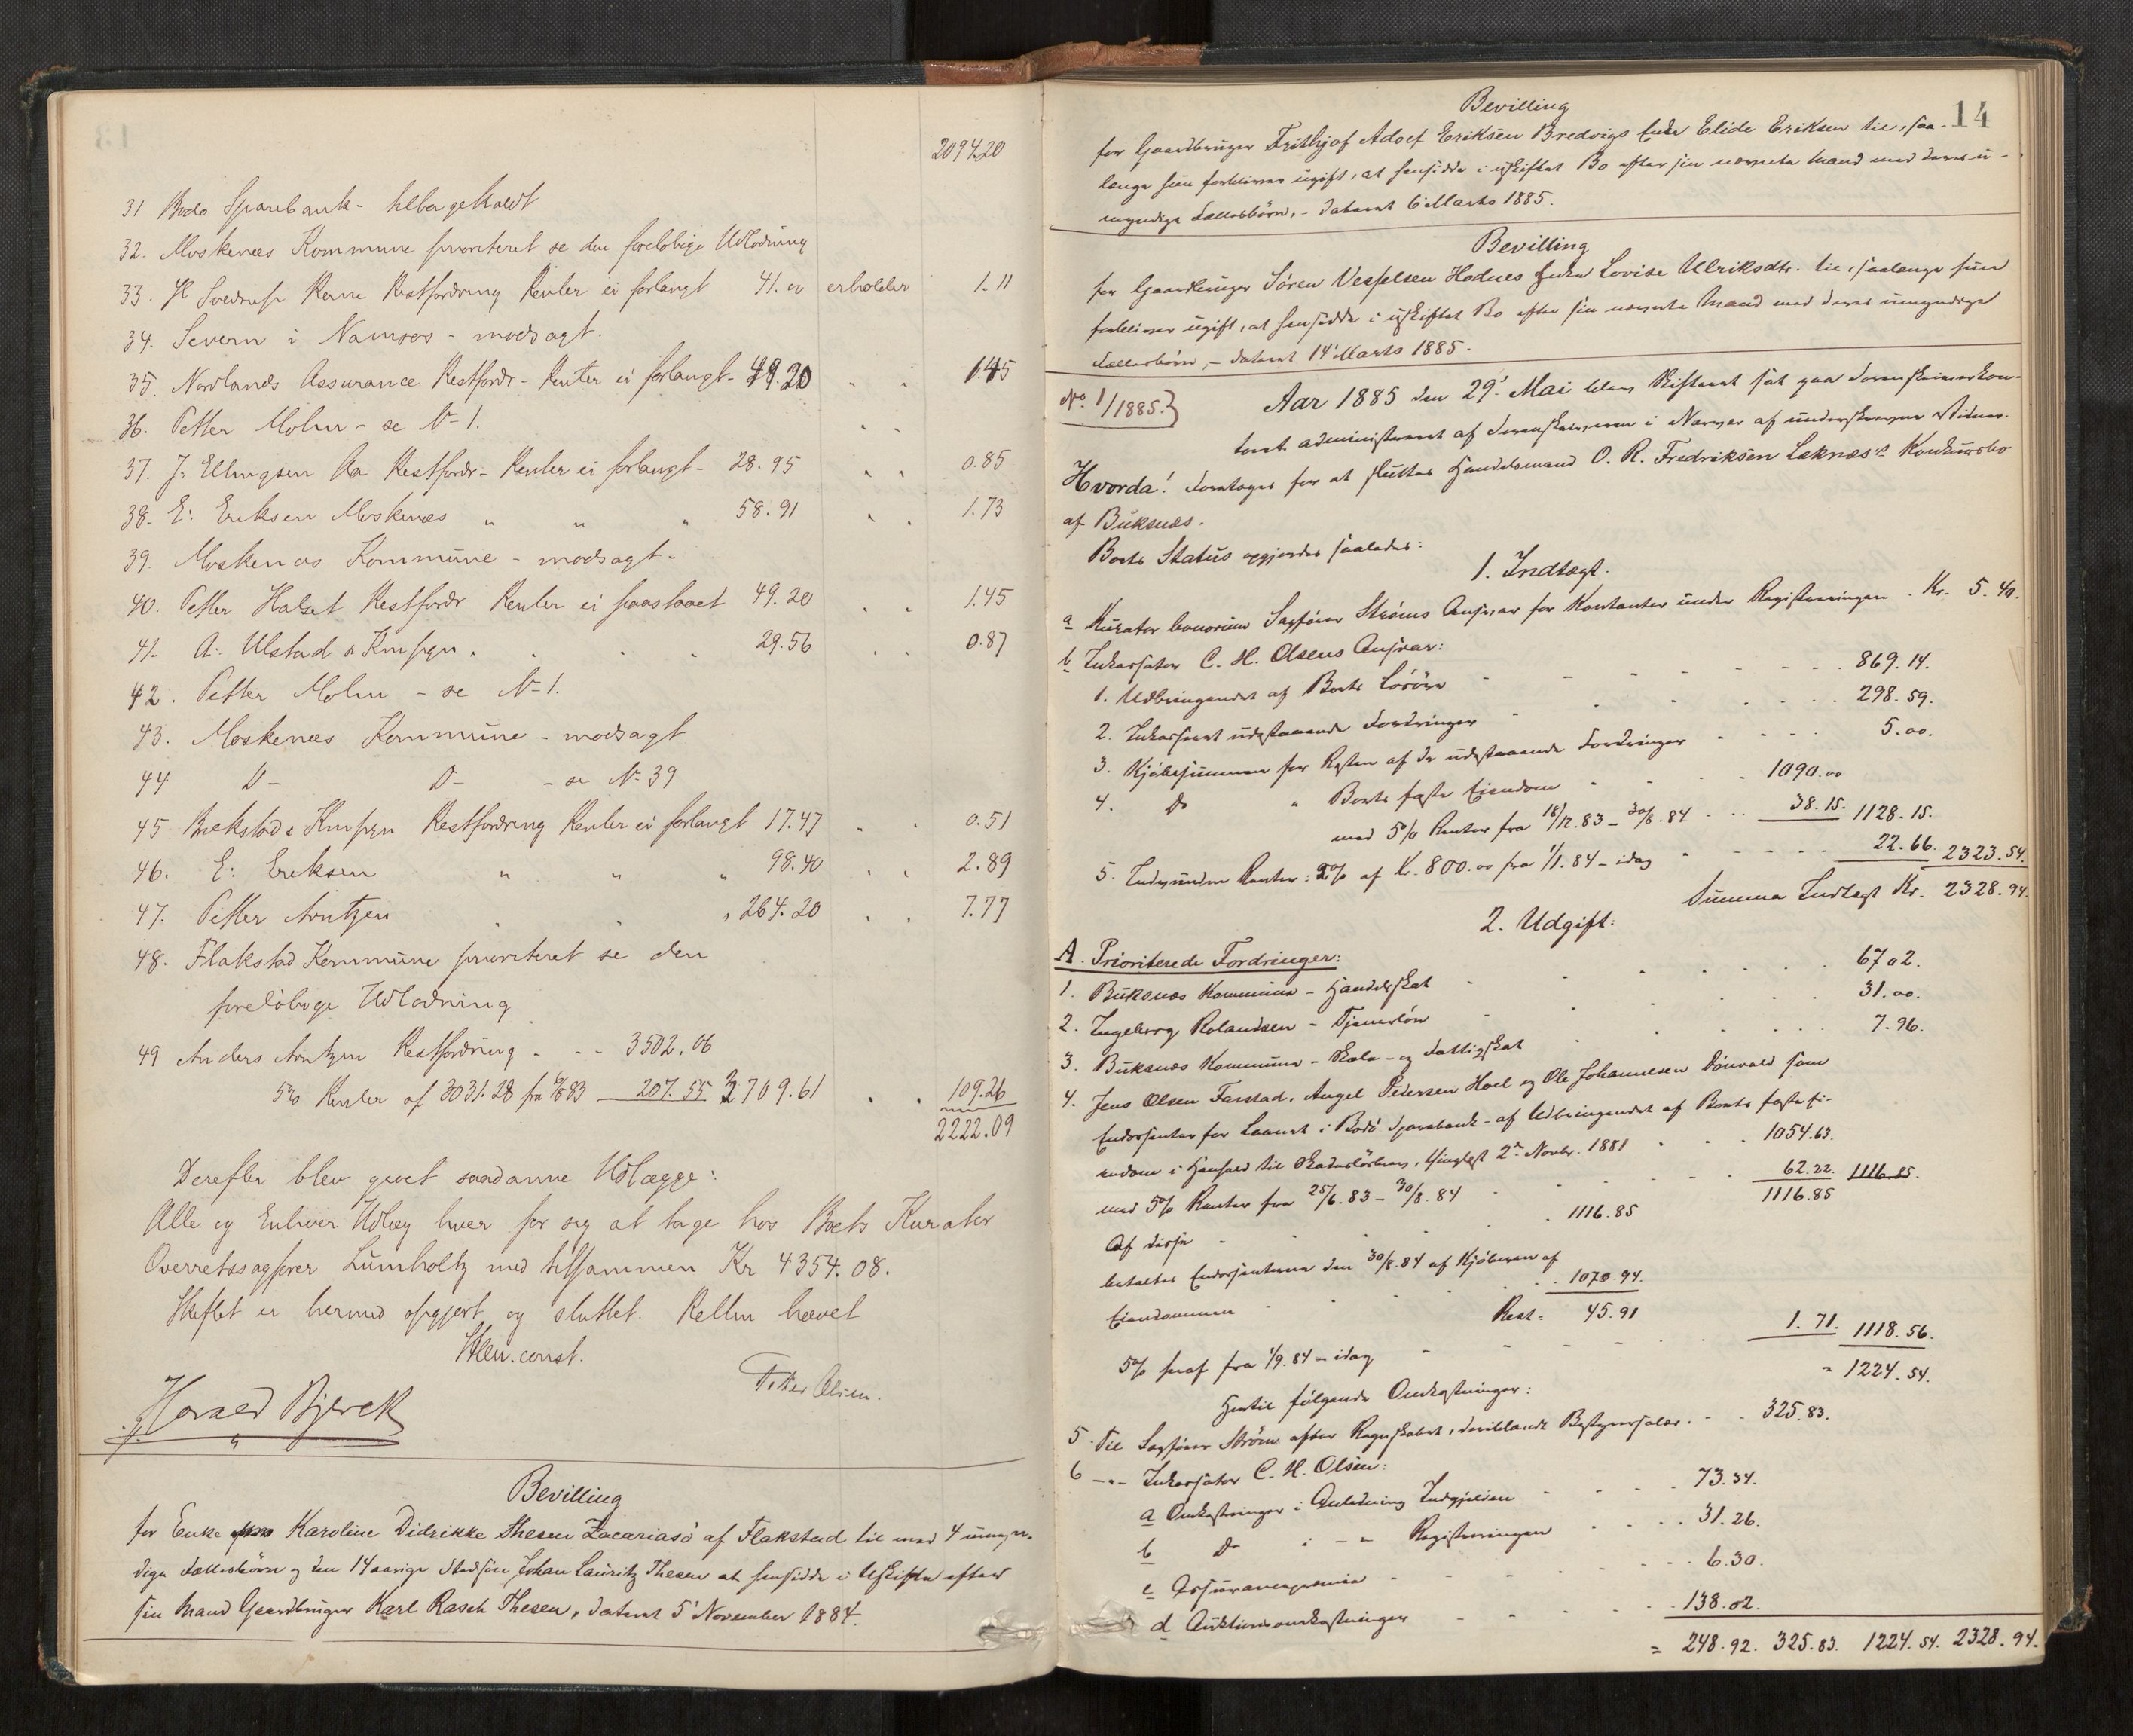 2094.20
31 Bodo Sparebank - tilbagekaldt
32. Moskenæs Kommune prioriteret se den foreløbige Udlodning
33. Sverdrup Reine Restfordring Renter ei forlangt 41. 00 erholder 1.11
34. Severin i Namsos - modsagt.
35. Nordlands Assurance Restfordr - Renter ei forlangt - 49.20 " " 1.45
36. Petter Molm - se No 1. " "
37. J. Ellingsen Aa Restfordr - Renter ei forlangt - 28.95 " " 0.85
38. E: Eriksen Moskenæs " " " 58.91 " " 1.73
39. Moskenæs Kommune - modsagt -
40. Petter Halset Restfordr Renter ei paastaaet 49.20 " " 1.45
41. A: Ulstad & Kmpgn . . . . 29.56 " " 0.87
42. Petter Molm - se No 1.
43. Moskenæs Kommune - modsagt
44 Do Do - se No 39
45 Brekstad & Kmpgn Restfordring Renter ei forlangt 17.47 " " 0.51
46. E: Eriksen " " " 98.40 " " 2.89
47. Petter Arntzen " " " 264.20 " " 7.77
48. Flakstad Kommune prioriteret se den
foreløbige Udlodning
49 Anders Arntzen Restfordring - - - 3502.06
5% Renter af 3031.28 fra 83 207.55 3709.61 " " 109.26
2222.09
Derefter blev gjort saadanne Udlægge:
Alle og Enhver Udlæg hver for sig at tage hos Boets Kurator
Overretssagfører Lumholtz med tilsammen Kr 4354.08.
Skiftet er hermed opgjort og sluttet. Retten hævet
Hen. const.
Harald Bjerck
Petter Olsen.
Bevilling
for Enke Karoline Didrikke Thesen Zacariasd af Flakstad til med 4 umyn-
dige Fællesbörn og den 14 aarige Stedsön Johan Lauritz Thesen at hensidde i Uskiftet efter
sin Mand Gaardbruger Karl Rasch Thesen, dateret 5' November 1884.
14
Bevilling
for Gaardbruger Frithjof Adolf Eriksen Bredvigs Enke Elide Eriksen til, saa-
længe hun forbliver ugift, at hensidde i uskiftet Bo efter sin nævnte Mand med deres u-
myndige Fællesbörn, - dateret 6' Marts 1885.
Bevilling
for Gaardbruger Søren Vesselsen Hodnes Enke Lovise Ulriksdtr. til, saalænge hun
forbliver ugift, at hensidde i uskiftet Bo efter sin nævnte Mand med deres umyndige
Fællesbörn, - dateret 14' Marts 1885.
No. 1/1885. } Aar 1885 den 29' Mai blev Skifteret sat paa Sorenskriverkon-
toret administreret af Sorenskriveren i Nærvær af underskrevne Vidner.
Hvorda! Foretoges for at sluttes Handelsmand O. R. Fredriksen Leknæs's Konkursbo
af Buksnæs.
Boets Status opgjordes saaledes:
1. Indtægt.
a Kurator bonorum Sagfører Strøms Ansvar for Kontanter under Registreringen . Kr. 5.40.
b Inkassator C. H. Olsens Ansvar:
1. Udbringendet af Boets Løsøre - - - - - 869.14.
2. Inkasseret udestaaende Fordringer - - - - 298.59.
3. Kjöbesummen for Resten af de udestaaende Fordringer - - - 5.00.
4. Do " Boets faste Eiendom - - 1090.00
med 5% Renter fra 18/12.83 - 30/8.84 - - 38.15. 1128.15.
5. Indvundne Renter: 2% af Kr. 800.00 fra 1/1.84 - idag - - - 22.66. 2323.54.
Summa Indtægt Kr. 2328.94.
2. Udgift:
A. Prioriterede Fordringer:
1. Buksnæs Kommune - Handelsskat - - - - 67.02.
2. Ingeborg Rolandsen - Tjenerløn - - - - 31.00.
3. Buksnæs Kommune - Skole - og Fattigskat - - - 7.96.
4. Jens Olsen Farstad, Angel Pedersen Hoel og Ole Johannesen Sönvald som
Endossenter for Laanet i Bodö Sparebank - af Udbringendet af Boets faste Ei-
endom i Henhold til Skadeslösbrev, thinglyst 2den Novbr. 1881 - - - 1054.63.
med 5% Renter fra 25/6.83 - 30/8.84 - - - 62.22. 1116.85.
Af disse - - - 1116.85 1116.85
betaltes Endossenterne den 30/8.84 af Kjöberen af
Eiendommen - - - - 1070.94.
Rest = 45.91
5% heraf fra 1/9.84 - idag - - - - 1.71. 1118.56.
= 1224.54.
Hertil følgende Omkostninger:
5 Til Sagfører Strøm efter Regnskabet, deriblandt Bestyrersalær. - - 325.83.
6 -"- Inkassator C. H. Olsen:
a Omkostninger i Anledning Indgjelden - - - 73.34.
b Do i -"- Registreringen - - - 31.26.
c Assurancepremie - - - - 6.30.
d Auktionsomkostninger - - - 138.02.
= 248.92. 325.83. 1224.54. 2328.94.